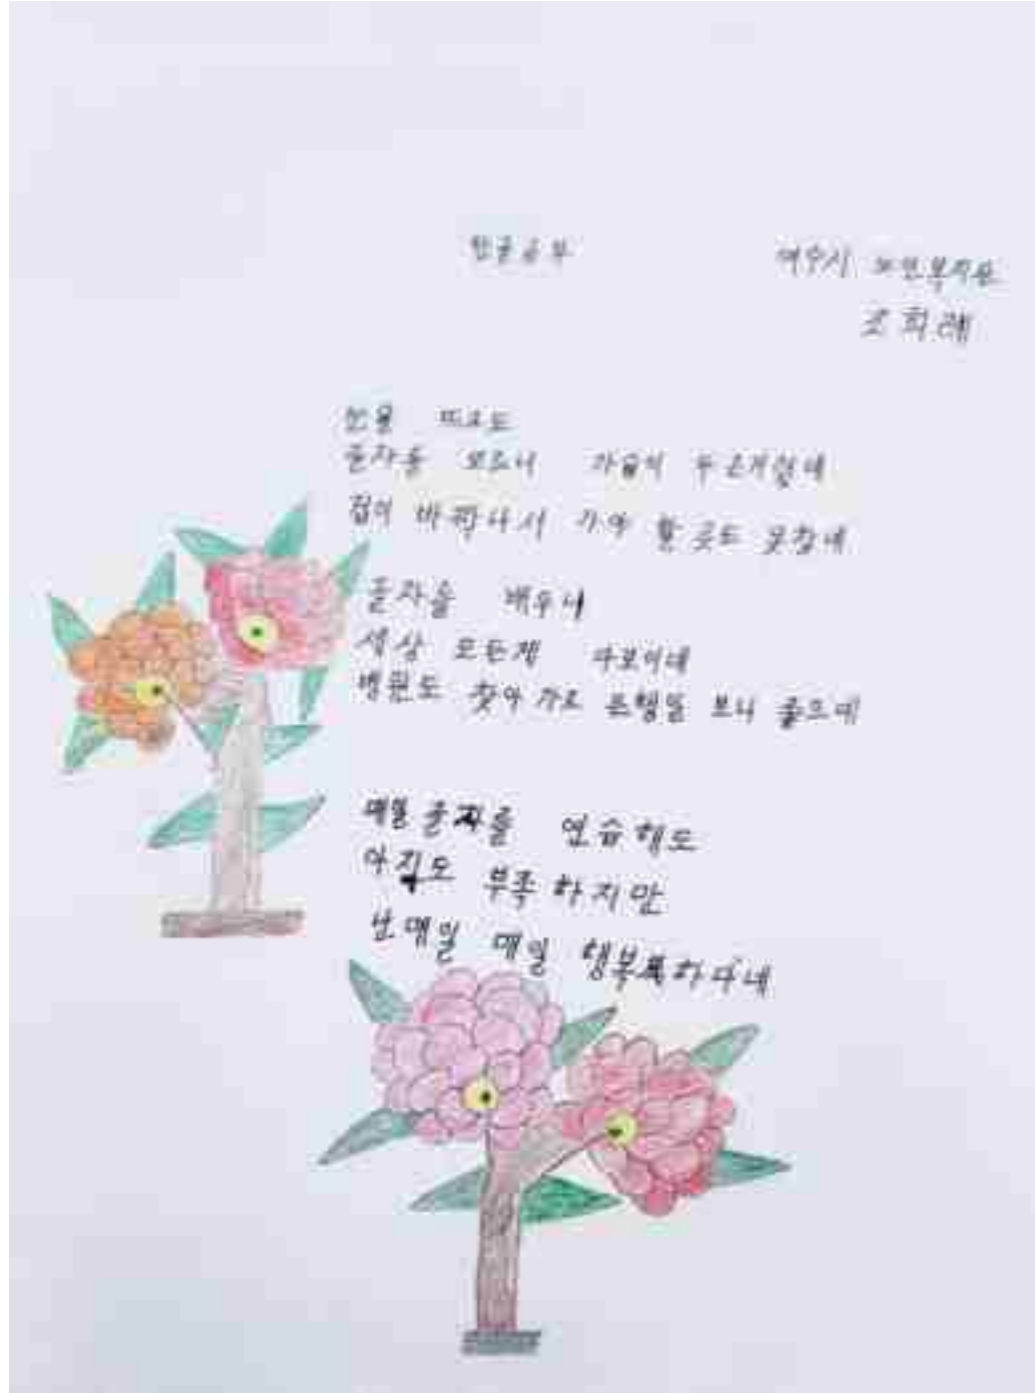 한글공부
여수시 노인복지관
조희례
눈을 떠도
글자를 모르니 가슴이
집이 바깥나서 가야 할 곳도 못찾네
글자을 배우니
세상 모든게 다보이네
병원도 찾아 가고 은행일 보니 좋으네
매일 글자를 연습해도
아직도 부족 하지만
난매일 매일 행복하다네